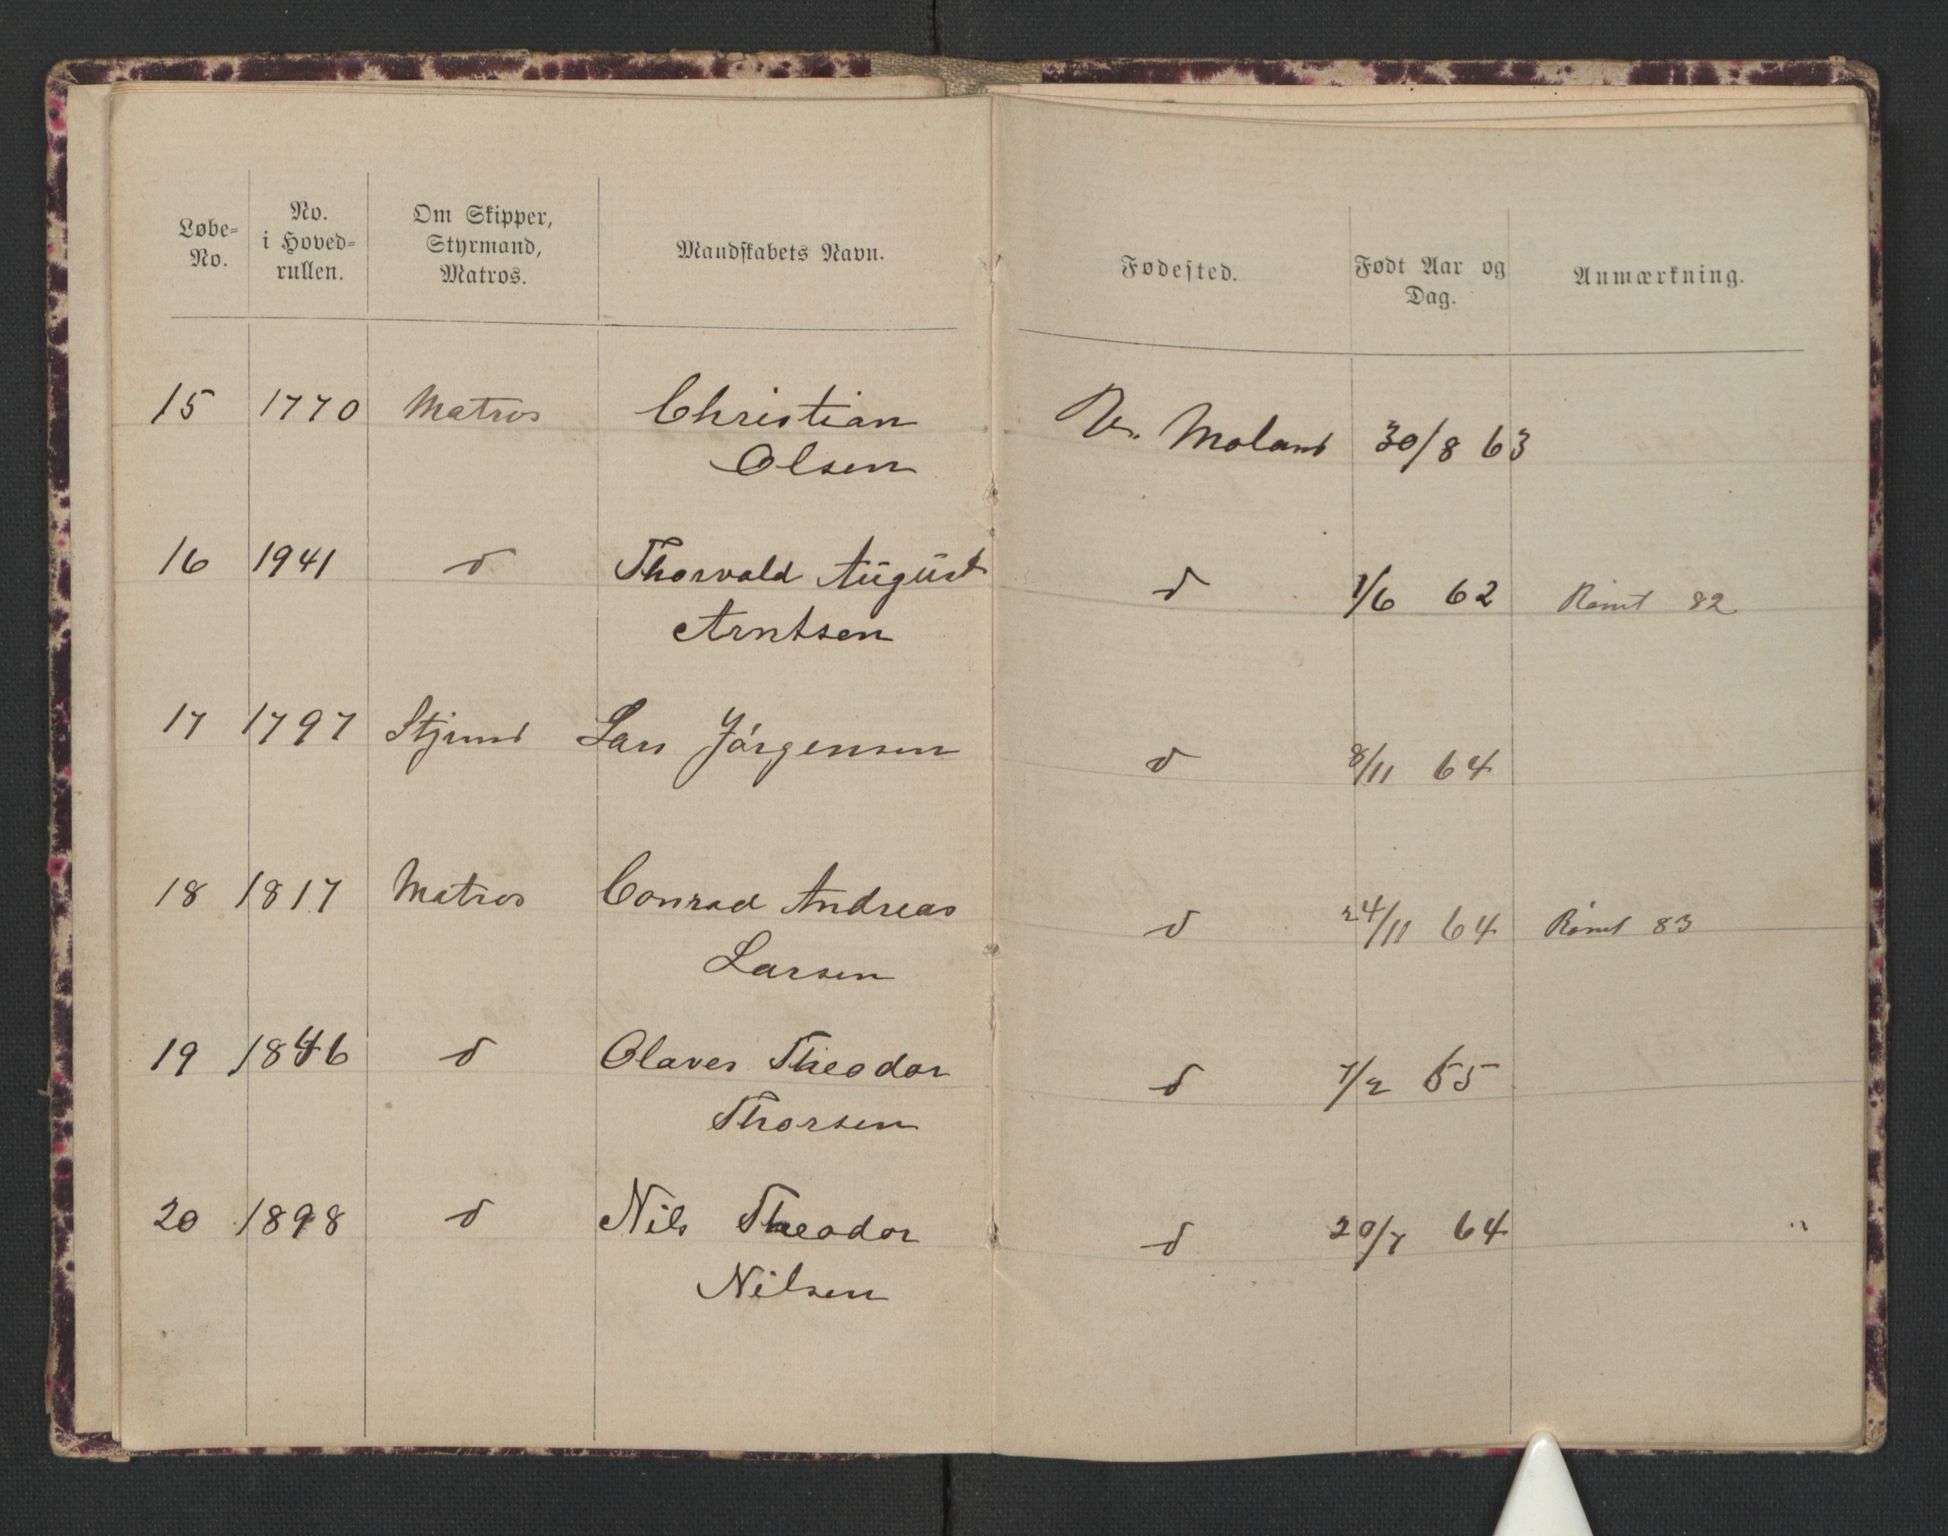 Løbe-No. No. i Hoved-rullen. Om Skipper, Styrmand, Matros. Mandskabets Navn. Fødested. Født Aar og Dag. Anmærkning.
15 1770 Matros Christian Moland 30/8 63
Olsen
16 1941 d Thorvald August d 1/6 62 Rømt 82
Arntsen
17 1797 Lars Jørgensen d 8/11 64
18 1817 Matros Conrad Andreas d 24/11 64 Rømt 83
Larsen
19 1846 d Olaves Theodor d 65
Thorsen
20 1898 d Nils Theodor d 20/7 64
Nilsen